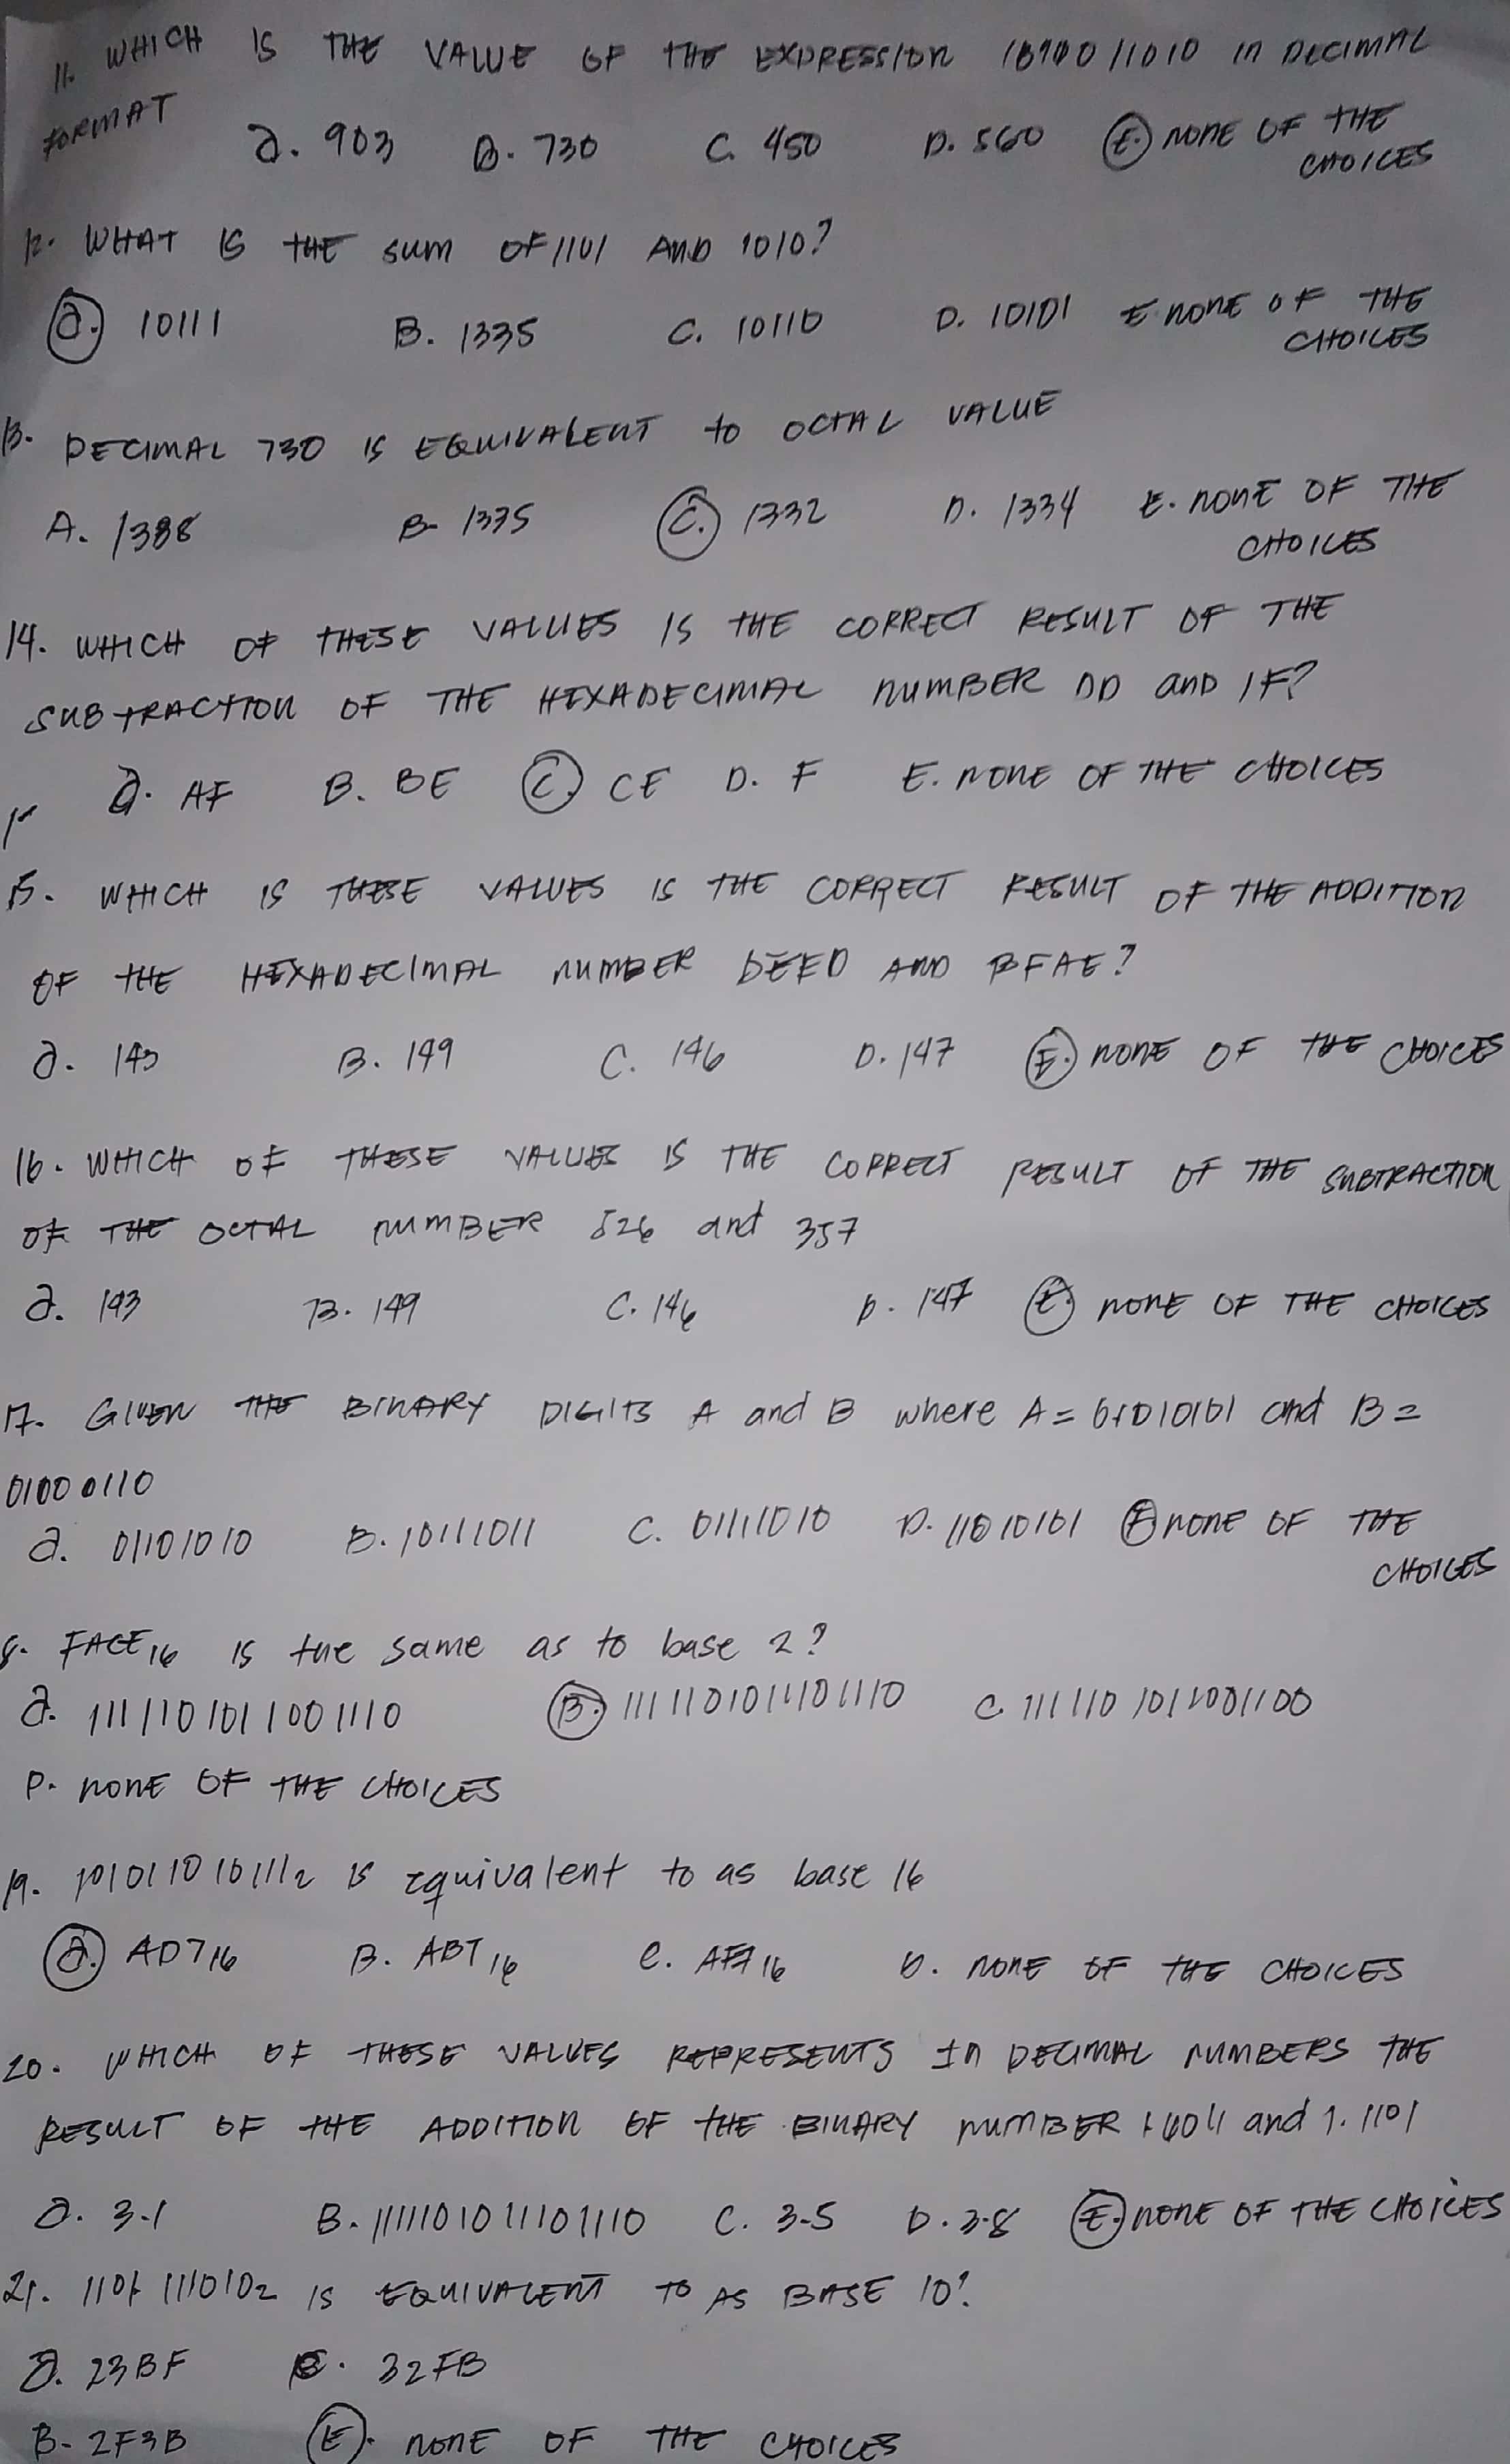 11. WHICH IS THE VALUE OF THE EXPRESSION 1011011010 in DECIMAL
FORMAT
a. 903 B. 730 C. 450 D. 560 E. NONE OF THE
CHOICES
12. WHAT IS THE SUM OF 1101 AND 1010?
a. 10111 B. 1335 C. 10110 D. 10101 E NONE OF THE
CHOICES
13. DECIMAL 730 IS EQUIVALENT to OCTAL VALUE
A. 1338 B- 1335 C. 1332 D. 1334 E. NONE OF THE
CHOICES
14. WHICH OF THESE VALUES IS THE CORRECT RESULT OF THE
SUBTRACTION OF THE HEXADECIMAL NUMBER DD and 1F?
a. AF B. BE C. CE D. F E. NONE OF THE CHOICES
15. WHICH IS THESE VALUES IS THE CORRECT RESULT OF THE ADDITION
OF THE HEXADECIMAL NUMBER DEED AND BFAE?
a. 143 B. 149 C. 146 D. 147 E. NONE OF THE CHOICES
16. WHICH OF THESE VALUES IS THE CORRECT RESULT OF THE SUBTRACTION
OF THE OCTAL NUMBER 526 and 357
a. 143 B. 149 C. 146 D. 147 E. NONE OF THE CHOICES
17. GIVEN THE BINARY DIGITS A and B where A= 01010101 and B=
01000110
a. 01101010 B. 10111011 C. 01111010 D. 11010101 E NONE OF THE
CHOICES
8. FACE16 IS the same as to base 2?
a. 1111101011001110 B. 1111101011101110 C. 1111101011001100
D. NONE OF THE CHOICES
19. 1010110101112 is equivalent to as base 16
a. AD716 B. AB716 C. AF716 D. NONE OF THE CHOICES
20. WHICH OF THESE VALUES REPRESENTS In DECIMAL NUMBERS THE
RESULT OF THE ADDITION OF THE BINARY NUMBER and 1.1101
a. 3.1 B. 1111101011101110 C. 3.5 D. 3.8 E. NONE OF THE CHOICES
21. 11011110102 IS EQUIVALENT TO AS BASE 10?
a. 23BF C. 32FB
B- 2F3B E. NONE OF THE CHOICES